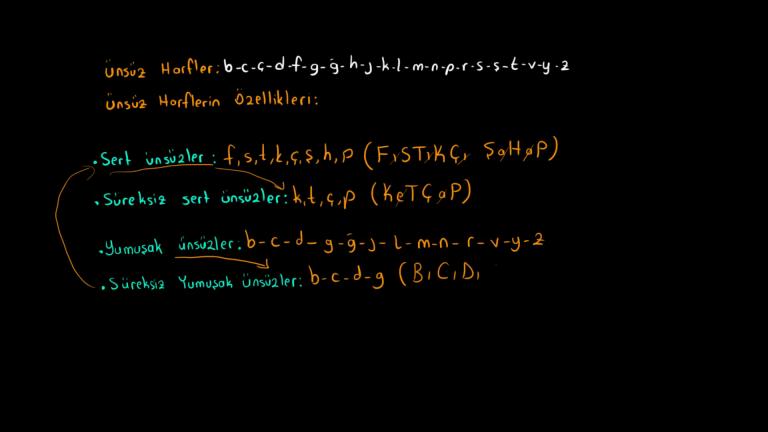 Ünsüz Harfler: b-c-ç-d-f-g-ğ-h-j-k-l-m-n-p-r-s-ş-t-v-y-z
Ünsüz Harflerin Özellikleri:
.Sert ünsüzler: f,s,t,k,ç,ş,h,p (FıSTıKÇı ŞaHaP)
.Süreksiz sert ünsüzler: k,t,ç,p (KeTÇaP)
.Yumuşak ünsüzler: b-c-d-g-ğ-j-l-m-n-r-v-y-z
.Süreksiz Yumuşak Ünsüzler: b-c-d-g (BıCıDı